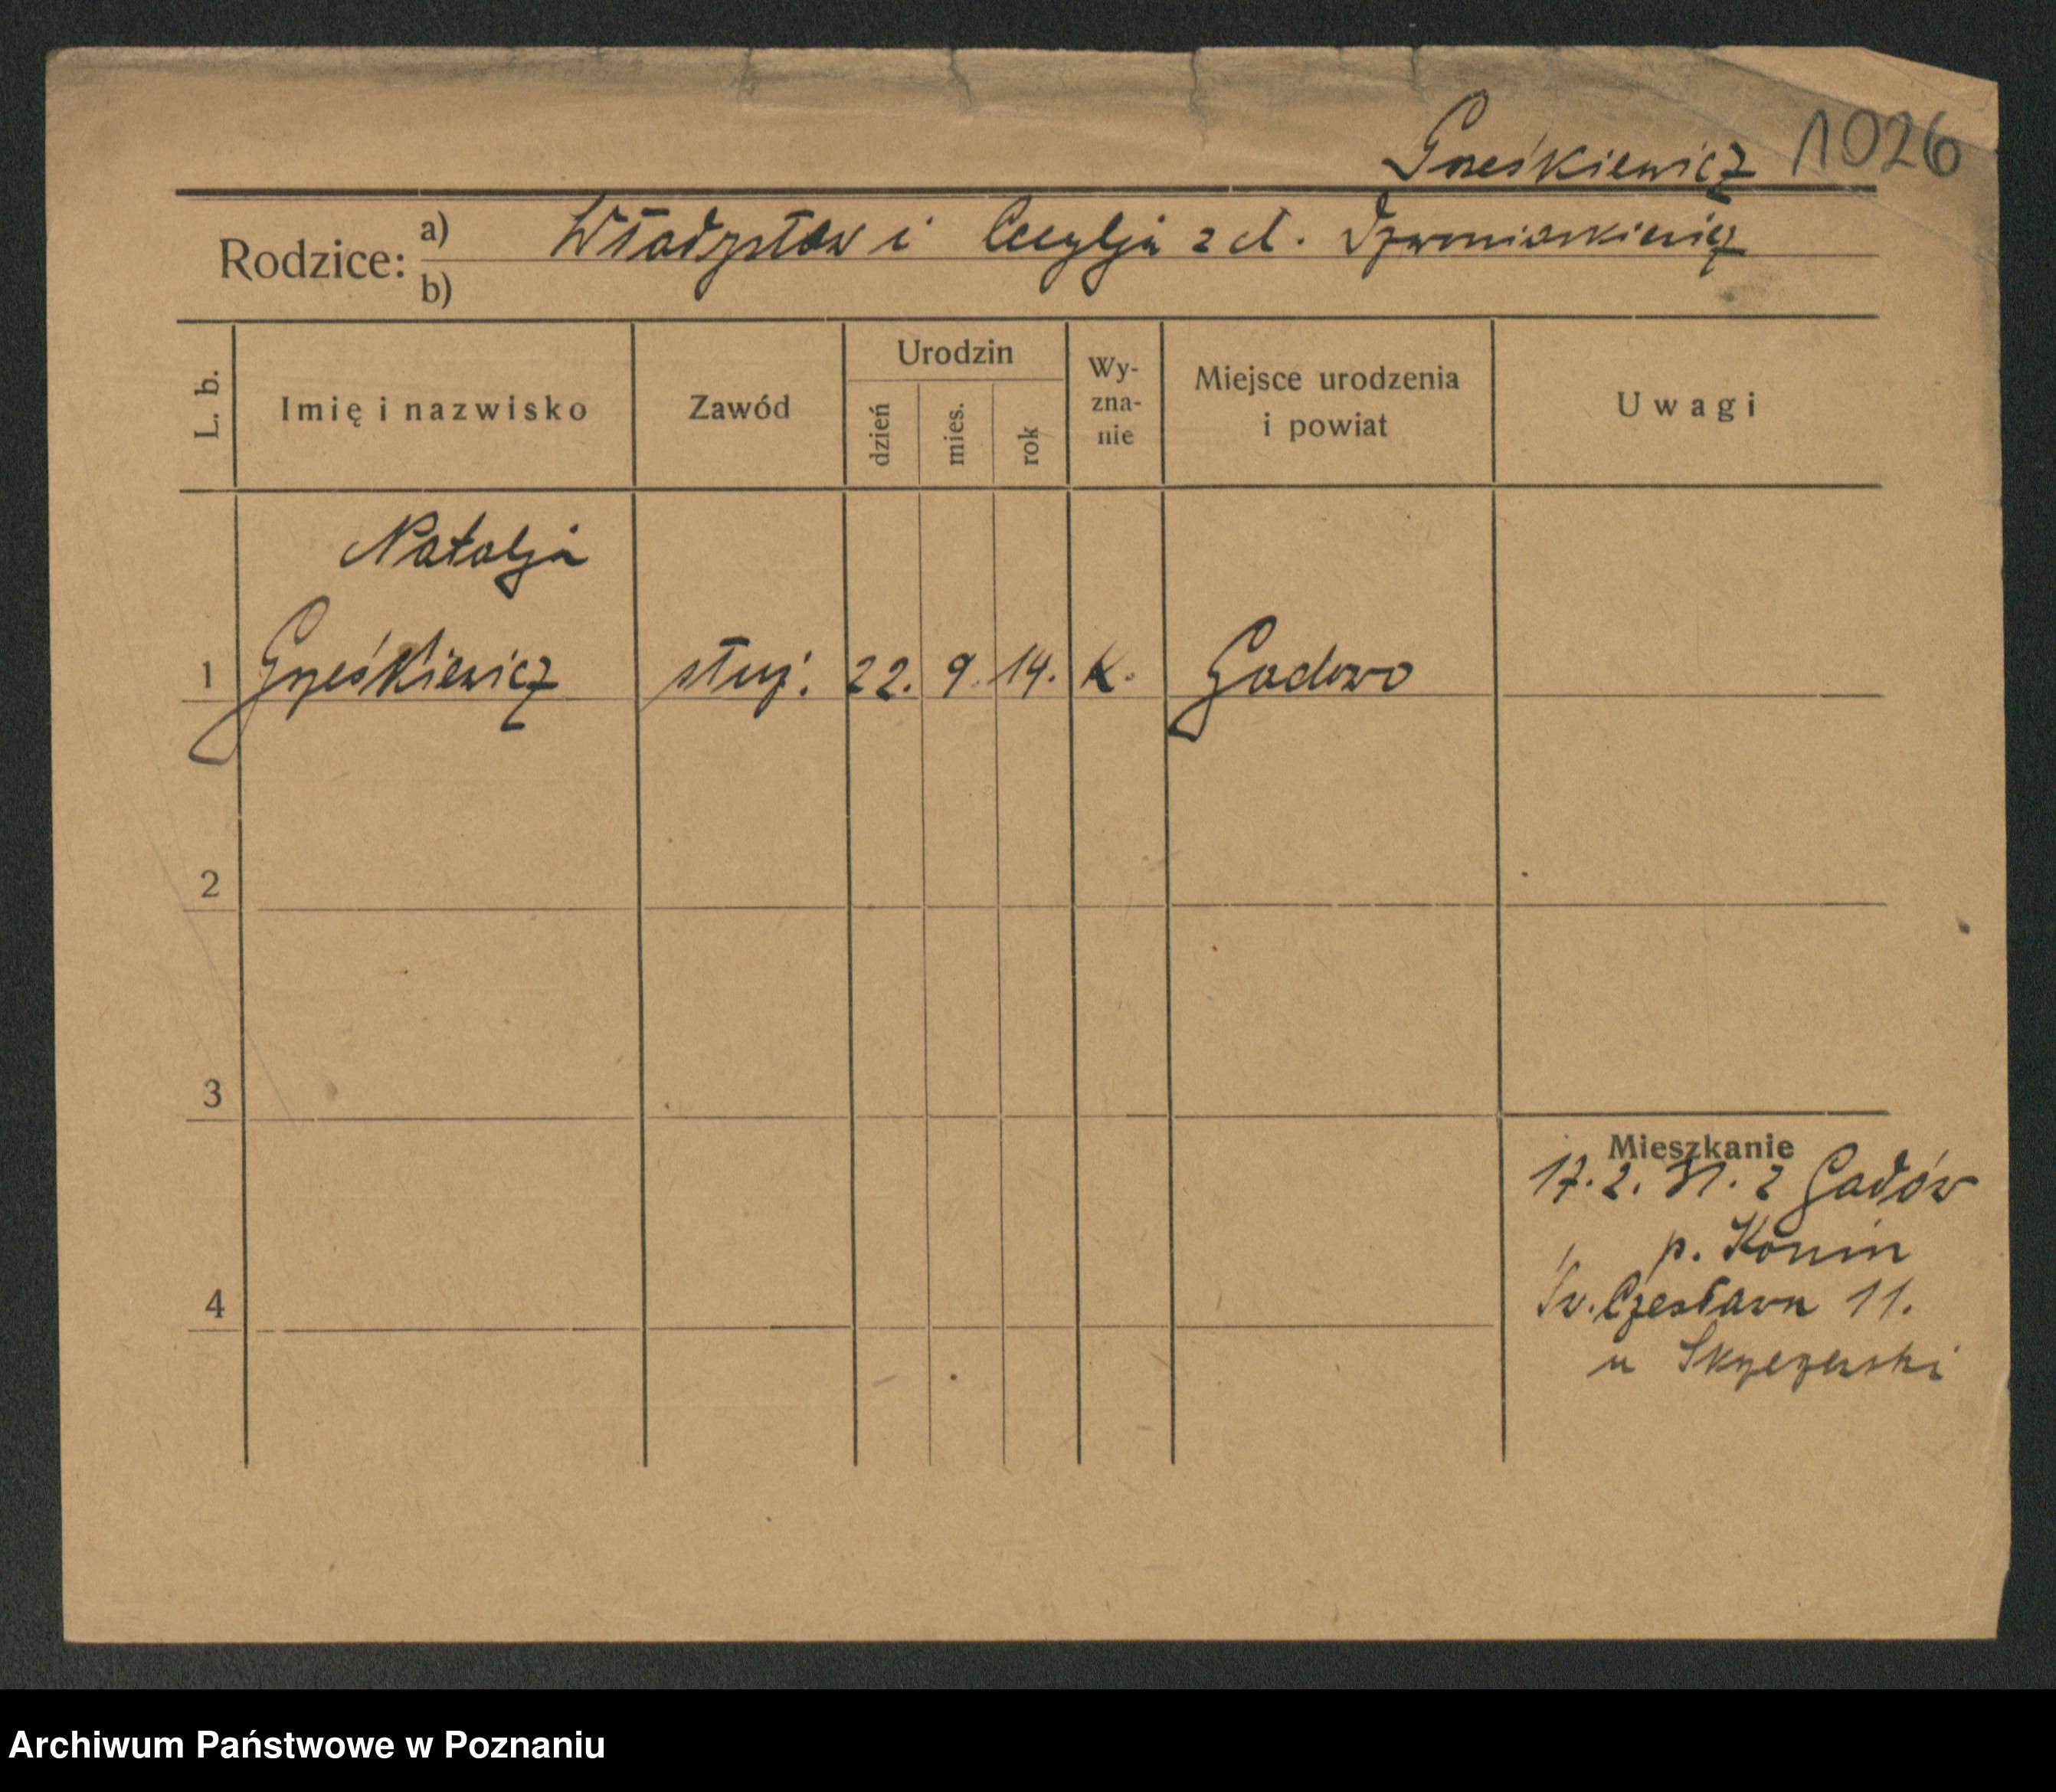 Grześkiewicz 1026
Rodzice: a) Władysław i Cecylja z d.
b)
L. b.
Imię i nazwisko
Zawód
Urodzin
dzień
mies.
rok
Wy-
zna-
nie
Miejsce urodzenia
i powiat
Uwagi
Natalja
1 Grześkiewicz służ. 22. 9. 14. K. Gadowo
2
3
4
Mieszkanie
17. 2. 31. z Gadów
p. Konin
Św. Czesława 11.
u
Archiwum Państwowe w Poznaniu